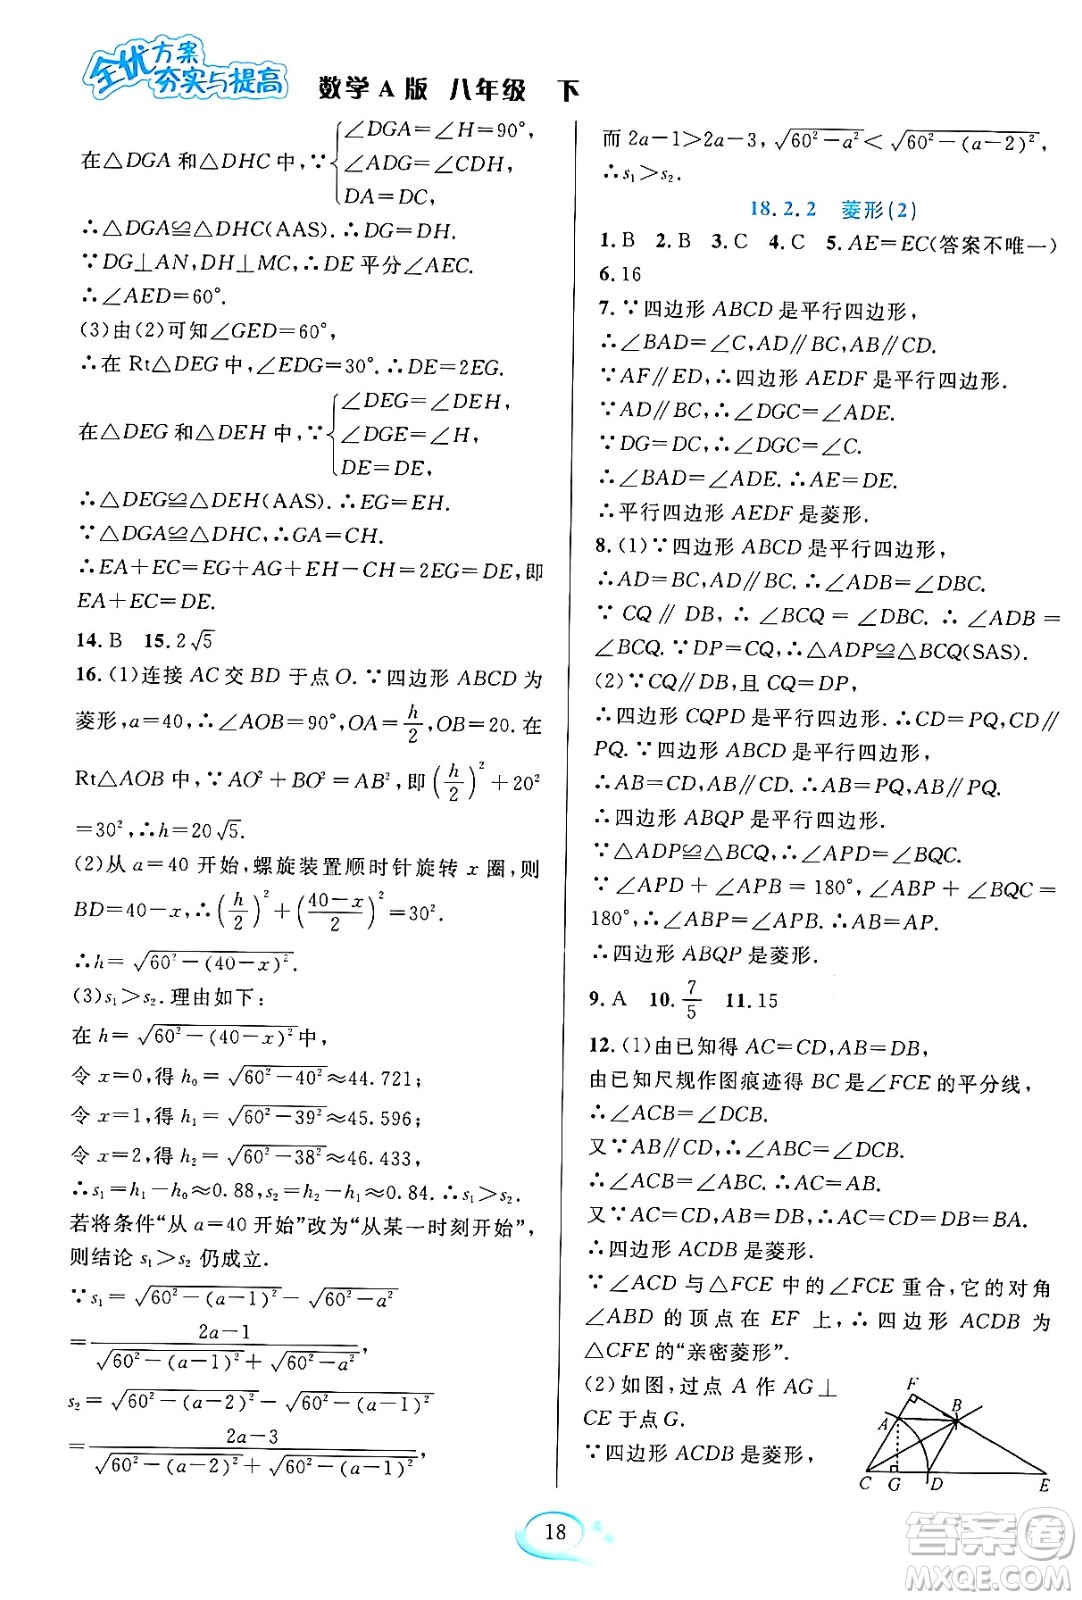 全优方案
夯实与提高
数学A版 八年级 下
在△DGA和△DHC中,∵{∠DGA=∠H=90°,
∠ADG=∠CDH,
DA=DC,
∴△DGA≌△DHC(AAS),∴DG=DH.
∵DG⊥AN,DH⊥MC,∴DE平分∠AEC.
∴∠AED=60°.
(3)由(2)可知∠GED=60°,
∴在Rt△DEG中,∠EDG=30°,∴DE=2EG.
在△DEG和△DEH中,∵{∠DEG=∠DEH,
∠DGE=∠H,
DE=DE,
∴△DEG≌△DEH(AAS).∴EG=EH.
∵△DGA≌△DHC,∴GA=CH.
∴EA+EC=EG+AG+EH-CH=2EG=DE,即
EA+EC=DE.
14.B 15.2√5
16.(1)连接AC交BD于点O.∵四边形ABCD为
菱形,a=40,∴∠AOB=90°,OA=h/2,OB=20.在
Rt△AOB中,∵AO²+BO²=AB²,即(h/2)²+20²
=30²,∴h=20√5.
(2)从a=40开始,螺旋装置顺时针旋转x圈,则
BD=40-x,∴(h/2)²+((40-x)/2)²=30².
∴h=√(60²-(40-x)²).
(3)s₁>s₂.理由如下:
在h=√(60²-(40-x)²)中,
令x=0,得h₀=√(60²-40²)≈44.721;
令x=1,得h₁=√(60²-39²)≈45.596;
令x=2,得h₂=√(60²-38²)≈46.433,
∴s₁=h₁-h₀≈0.88,s₂=h₂-h₁≈0.84.∴s₁>s₂.
若将条件“从a=40开始”改为“从某一时刻开始”,
则结论s₁>s₂仍成立.
∵s₁=√(60²-(a-1)²)-√(60²-a²)
=(2a-1)/(√(60²-(a-1)²)+√(60²-a²)),
s₂=√(60²-(a-2)²)-√(60²-(a-1)²)
=(2a-3)/(√(60²-(a-2)²)+√(60²-(a-1)²)),
而2a-1>2a-3,√(60²-a²)<√(60²-(a-2)²),
∴s₁>s₂.
18.2.2 菱形(2)
1.B 2.B 3.C 4.C 5.AE=EC(答案不唯一)
6.16
7.∵四边形ABCD是平行四边形,
∴∠BAD=∠C,AD∥BC,AB∥CD.
∵AF∥ED,∴四边形AEDF是平行四边形.
∵AD∥BC,∴∠DGC=∠ADE.
∵DG=DC,∴∠DGC=∠C.
∴∠BAD=∠ADE.∴AE=DE.
∴平行四边形AEDF是菱形.
8.(1)∵四边形ABCD是平行四边形,
∴AD=BC,AD∥BC.∴∠ADB=∠DBC.
∵CQ∥DB,∴∠BCQ=∠DBC.∴∠ADB=
∠BCQ.∵DP=CQ,∴△ADP≌△BCQ(SAS).
(2)∵CQ∥DB,且CQ=DP,
∴四边形CQPD是平行四边形.∴CD=PQ,CD∥
PQ.∵四边形ABCD是平行四边形,
∴AB=CD,AB∥CD.∴AB=PQ,AB∥PQ.
∴四边形ABQP是平行四边形.
∵△ADP≌△BCQ,∴∠APD=∠BQC.
∵∠APD+∠APB=180°,∠ABP+∠BQC=
180°,∴∠ABP=∠APB.∴AB=AP.
∴四边形ABQP是菱形.
9.A 10.7/5 11.15
12.(1)由已知得AC=CD,AB=DB,
由已知尺规作图痕迹得BC是∠FCE的平分线,
∴∠ACB=∠DCB.
又∵AB∥CD,∴∠ABC=∠DCB.
∴∠ACB=∠ABC.∴AC=AB.
又∵AC=CD,AB=DB,∴AC=CD=DB=BA.
∴四边形ACDB是菱形.
∵∠ACD与△FCE中的∠FCE重合,它的对角
∠ABD的顶点在EF上,∴四边形ACDB为
△CFE的“亲密菱形”.
(2)如图,过点A作AG⊥
CE于点G.
∵四边形ACDB是菱形,
F
A
B
C
G
D
E
18
答案圈
MXQE.COM